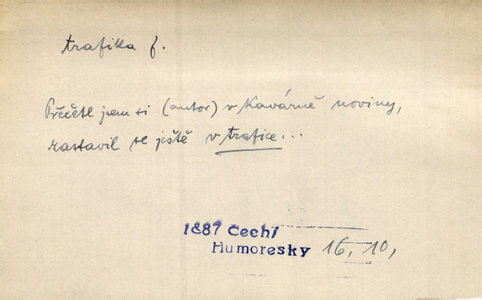 trafika f.
Přečetl jsem si (autor) v kavárně noviny,
zastavil se ještě v trafice...
1887 Čech1
Humoresky 16, 10,